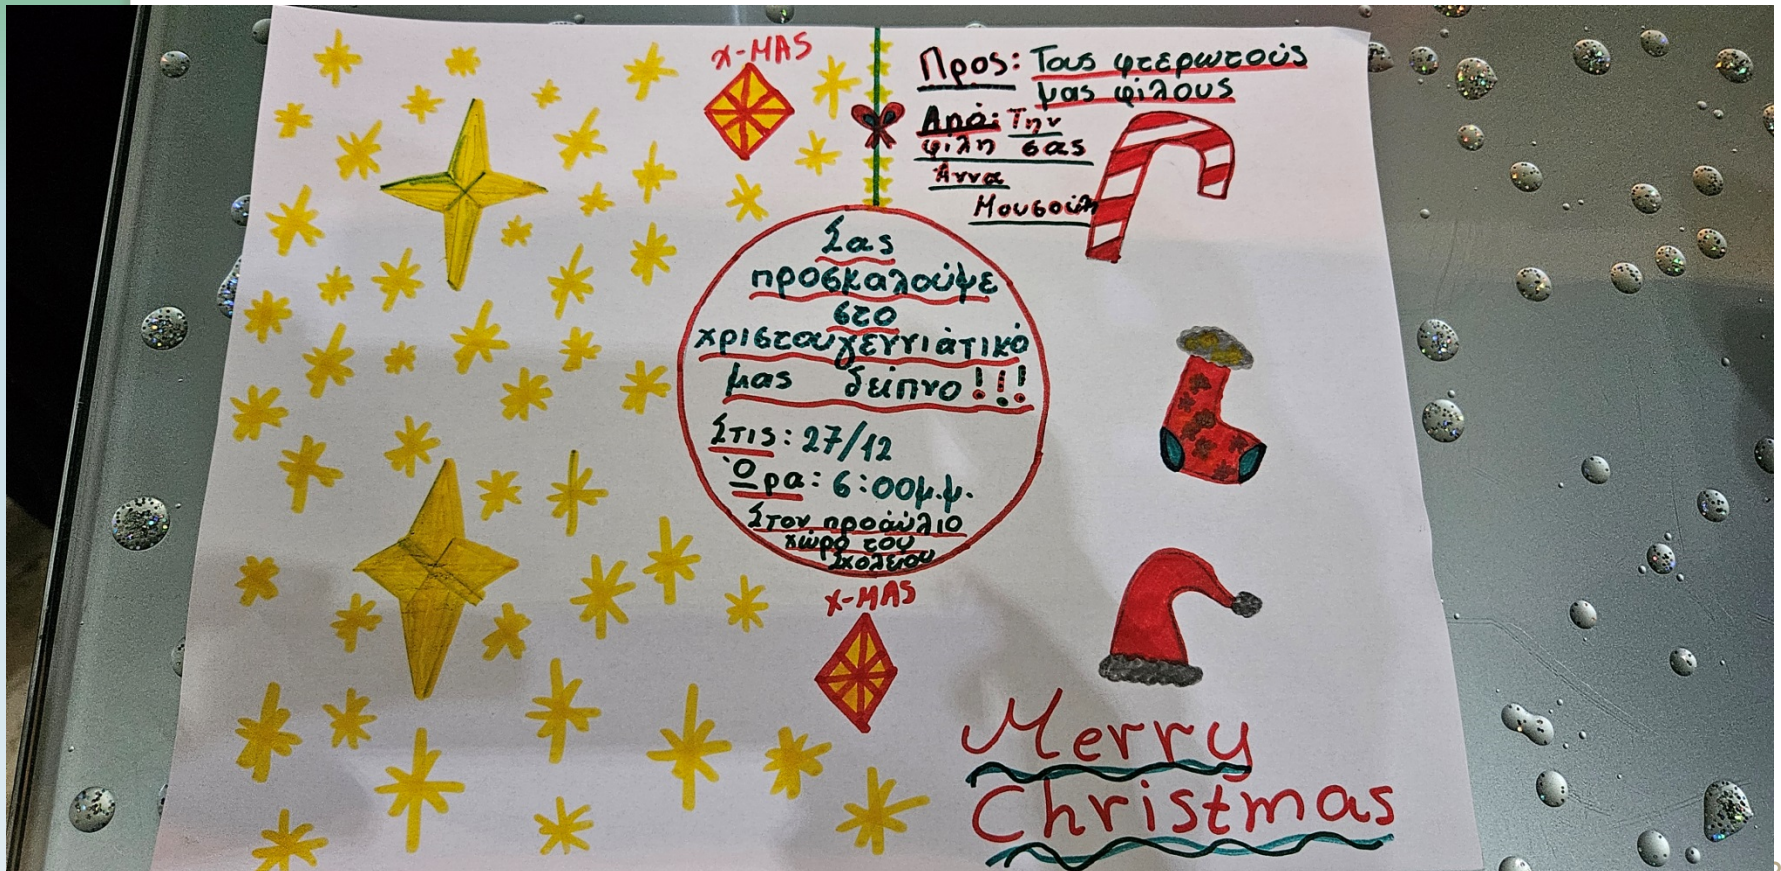 X-MAS
Προς: Τους φτερωτούς
μας φίλους
Από: Την
φίλη σας
Άννα
Μουσούλη
Σας
προσκαλούμε
στο
χριστουγεννιάτικό
μας δείπνο!!!
Στις: 27/12
Ώρα: 6:00μ.μ.
Στον προαύλιο
χώρο του
Σχολείου
X-MAS
Merry
Christmas